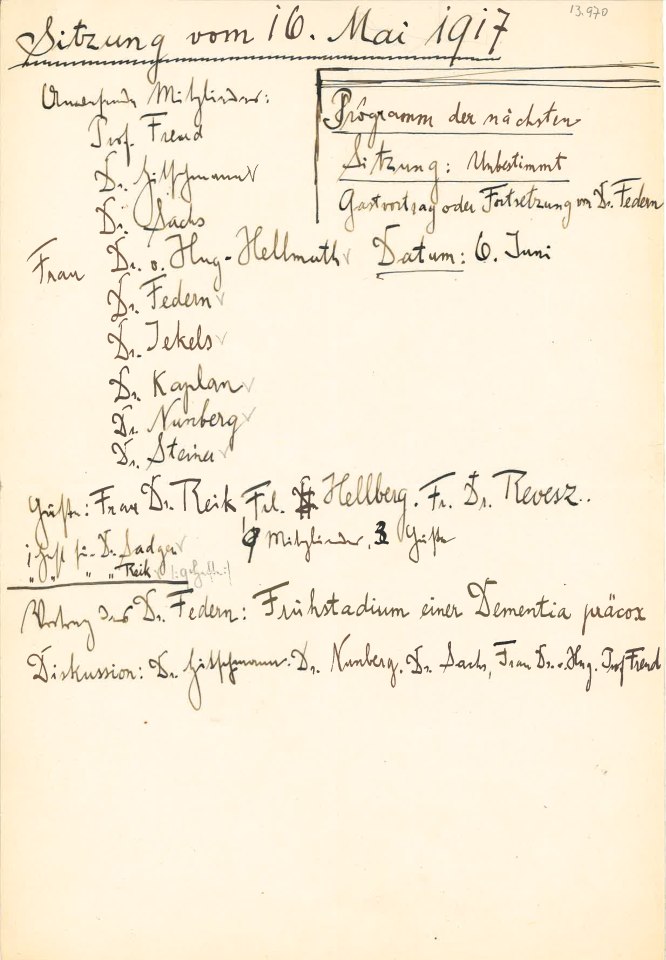 13.970
Sitzung vom 16. Mai 1917
Anwesende Mitglieder:
Prof. Freud
Dr. Hitschmann
Dr. Sachs
Frau Dr. v. Hug-Hellmuth
Dr. Federn
Dr. Jekels
Dr. Kaplan
Dr. Nunberg
Dr. Steiner
Programm der nächsten
Sitzung: Unbestimmt
Gastvortrag oder Fortsetzung von Dr. Federn
Datum: 6. Juni
Gäste: Frau Dr. Reik, Frl. Hellberg. Fr. Dr. Revesz..
9 Mitglieder, 3 Gäste
für Dr. Sadger
" " " " Reik
Vortrag des Dr. Federn: Frühstadium einer Dementia präcox
Diskussion: Dr. Hitschmann. Dr. Nunberg. Dr. Sachs, Frau Dr. v. Hug. Prof Freud